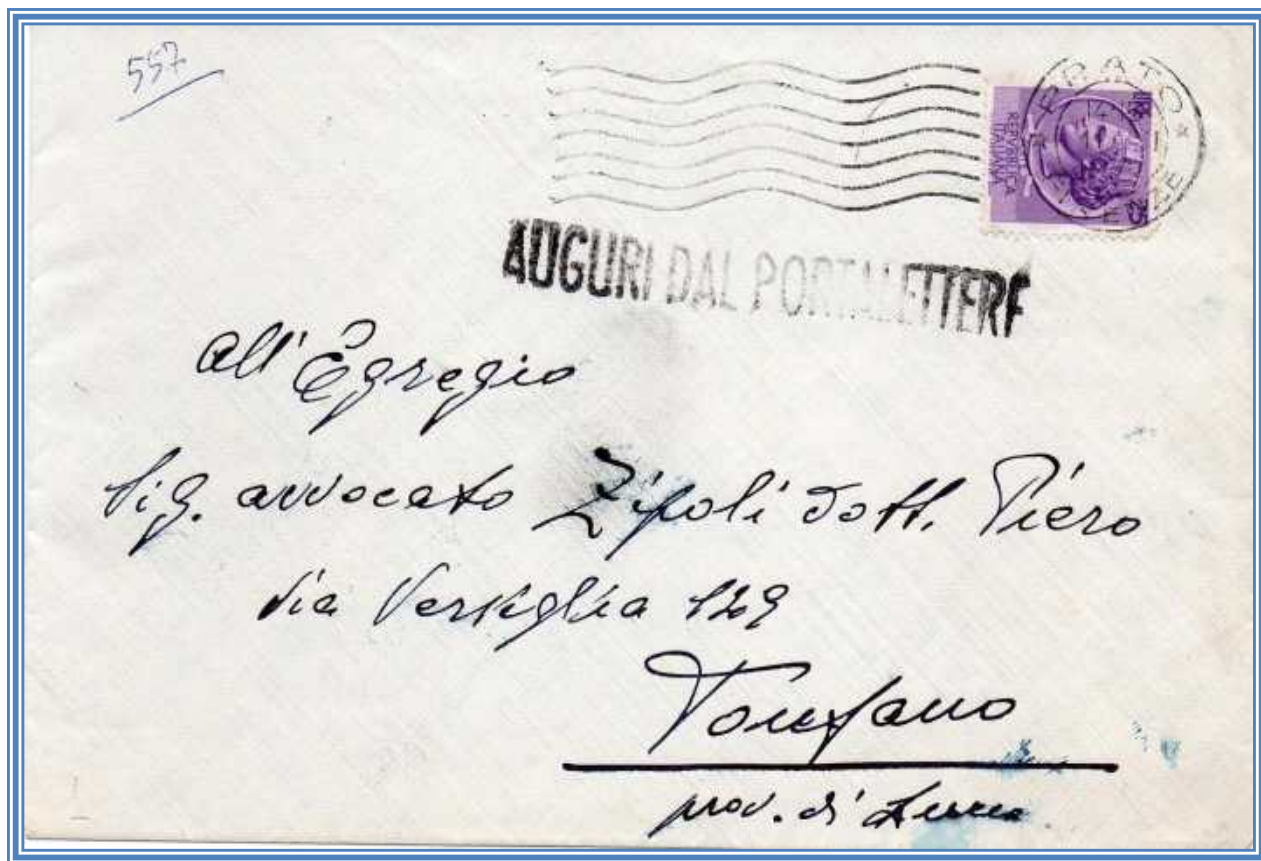 557
PRATO
REPVBBLICA
ITALIANA
25
AUGURI DAL PORTALETTERE
All'Egregio
Sig. avvocato Zipoli dott. Piero
via Versiglia 129
Tonfano
prov. di Lucca